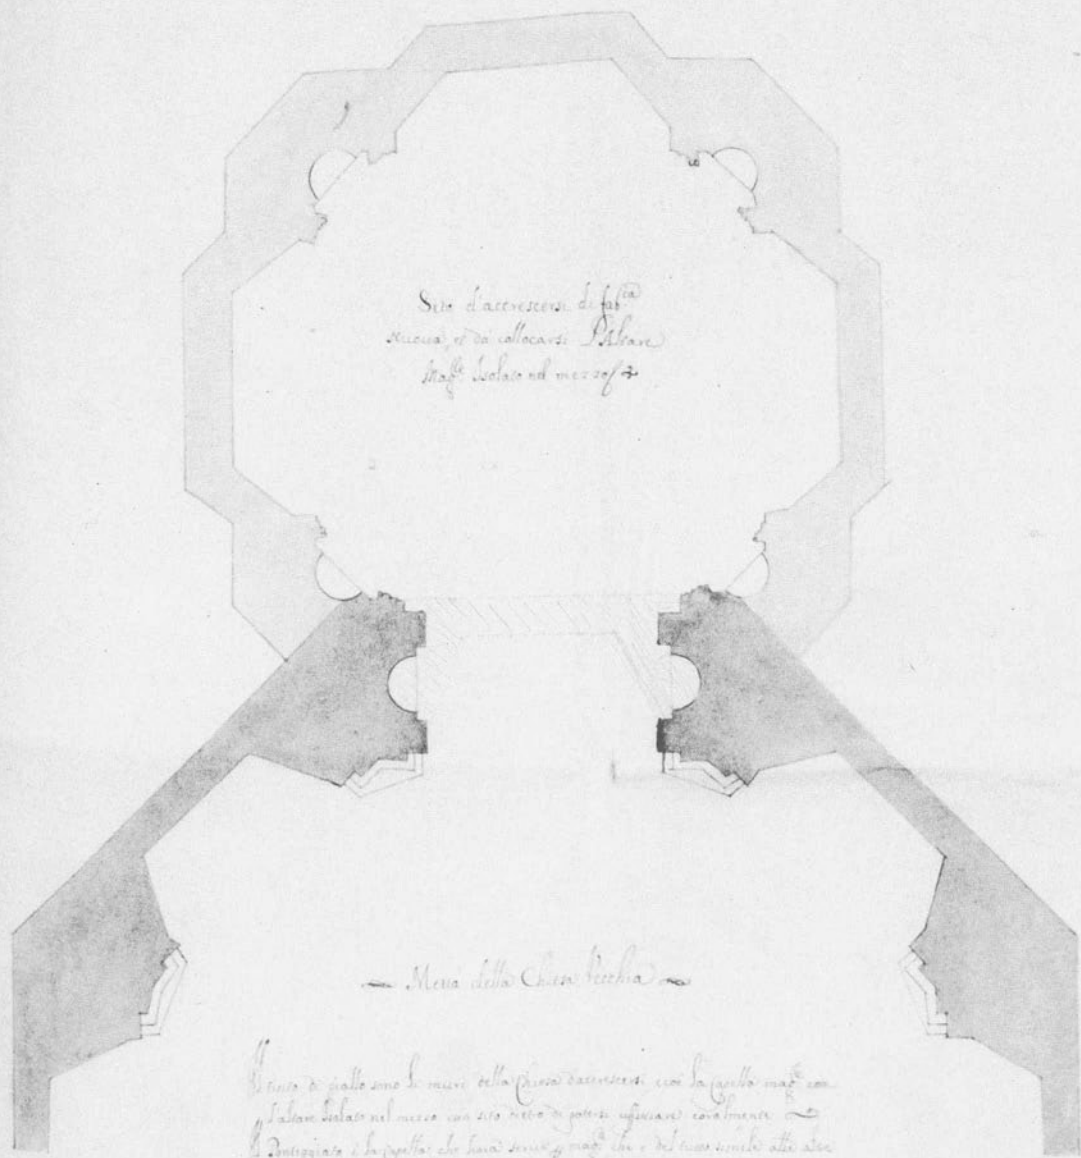 Sito d'accrescersi di fab.ca
nuova, et da collocarsi l'Altare
Magg.e Isolato nel mezzo
Metta della Chiesa Vecchia
Il tinto di giallo sono li muri della Chiesa d'accrescersi cioè la Capella mag.e con
l'altare Isolato nel mezzo con sito dietro di potersi ufficiare coralmente
Il Ponteggiato è la capella che hora serve mag.e che è del tutto simile alle altre